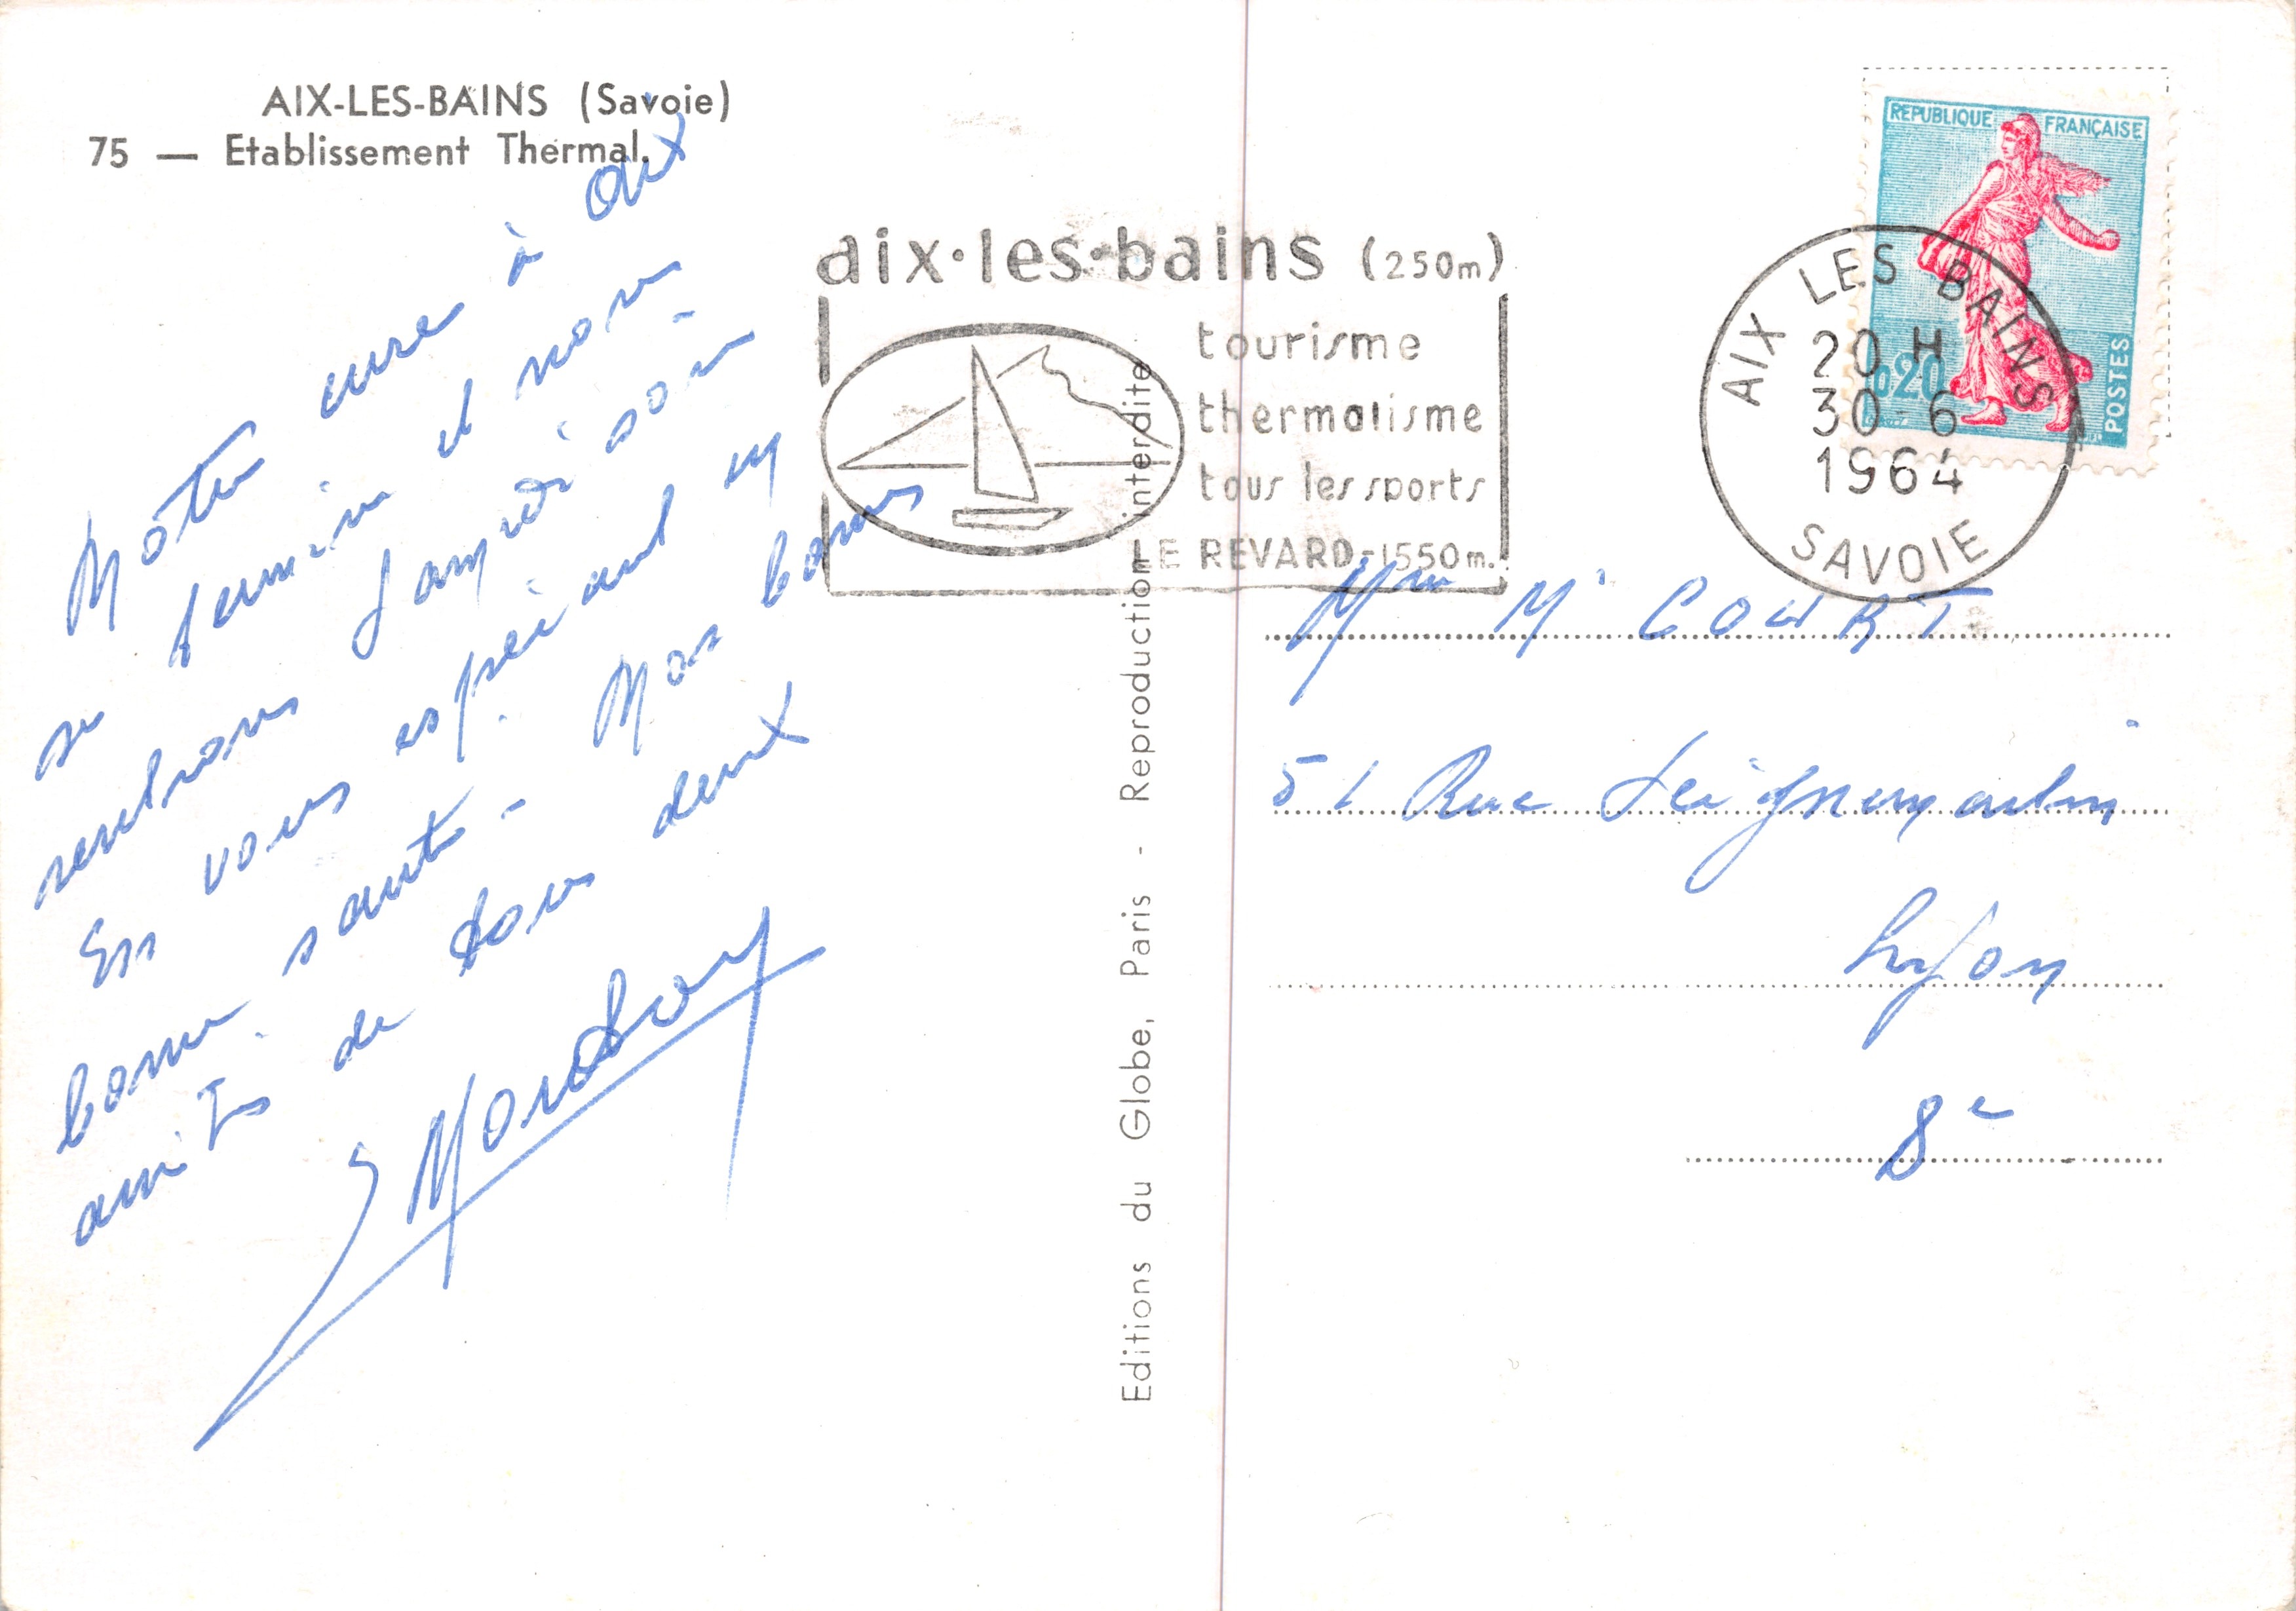 AIX-LES-BAINS (Savoie)
75 — Etablissement Thermal.
Notre cure à aix
se termine et nous
rentrons samedi soir -
En vous espérant en
bonne santé - Nos bonnes
amitiés de tous deux
aix·les·bains (250m)
tourisme
thermalisme
tous les sports
LE REVARD-1550m.
REPUBLIQUE FRANÇAISE
0,20
POSTES
AIX LES BAINS
20 H
30-6
1964
SAVOIE
Editions du Globe, Paris - Reproduction interdite
Mme M COURT
51 Rue Seignemartin
Lyon
8e